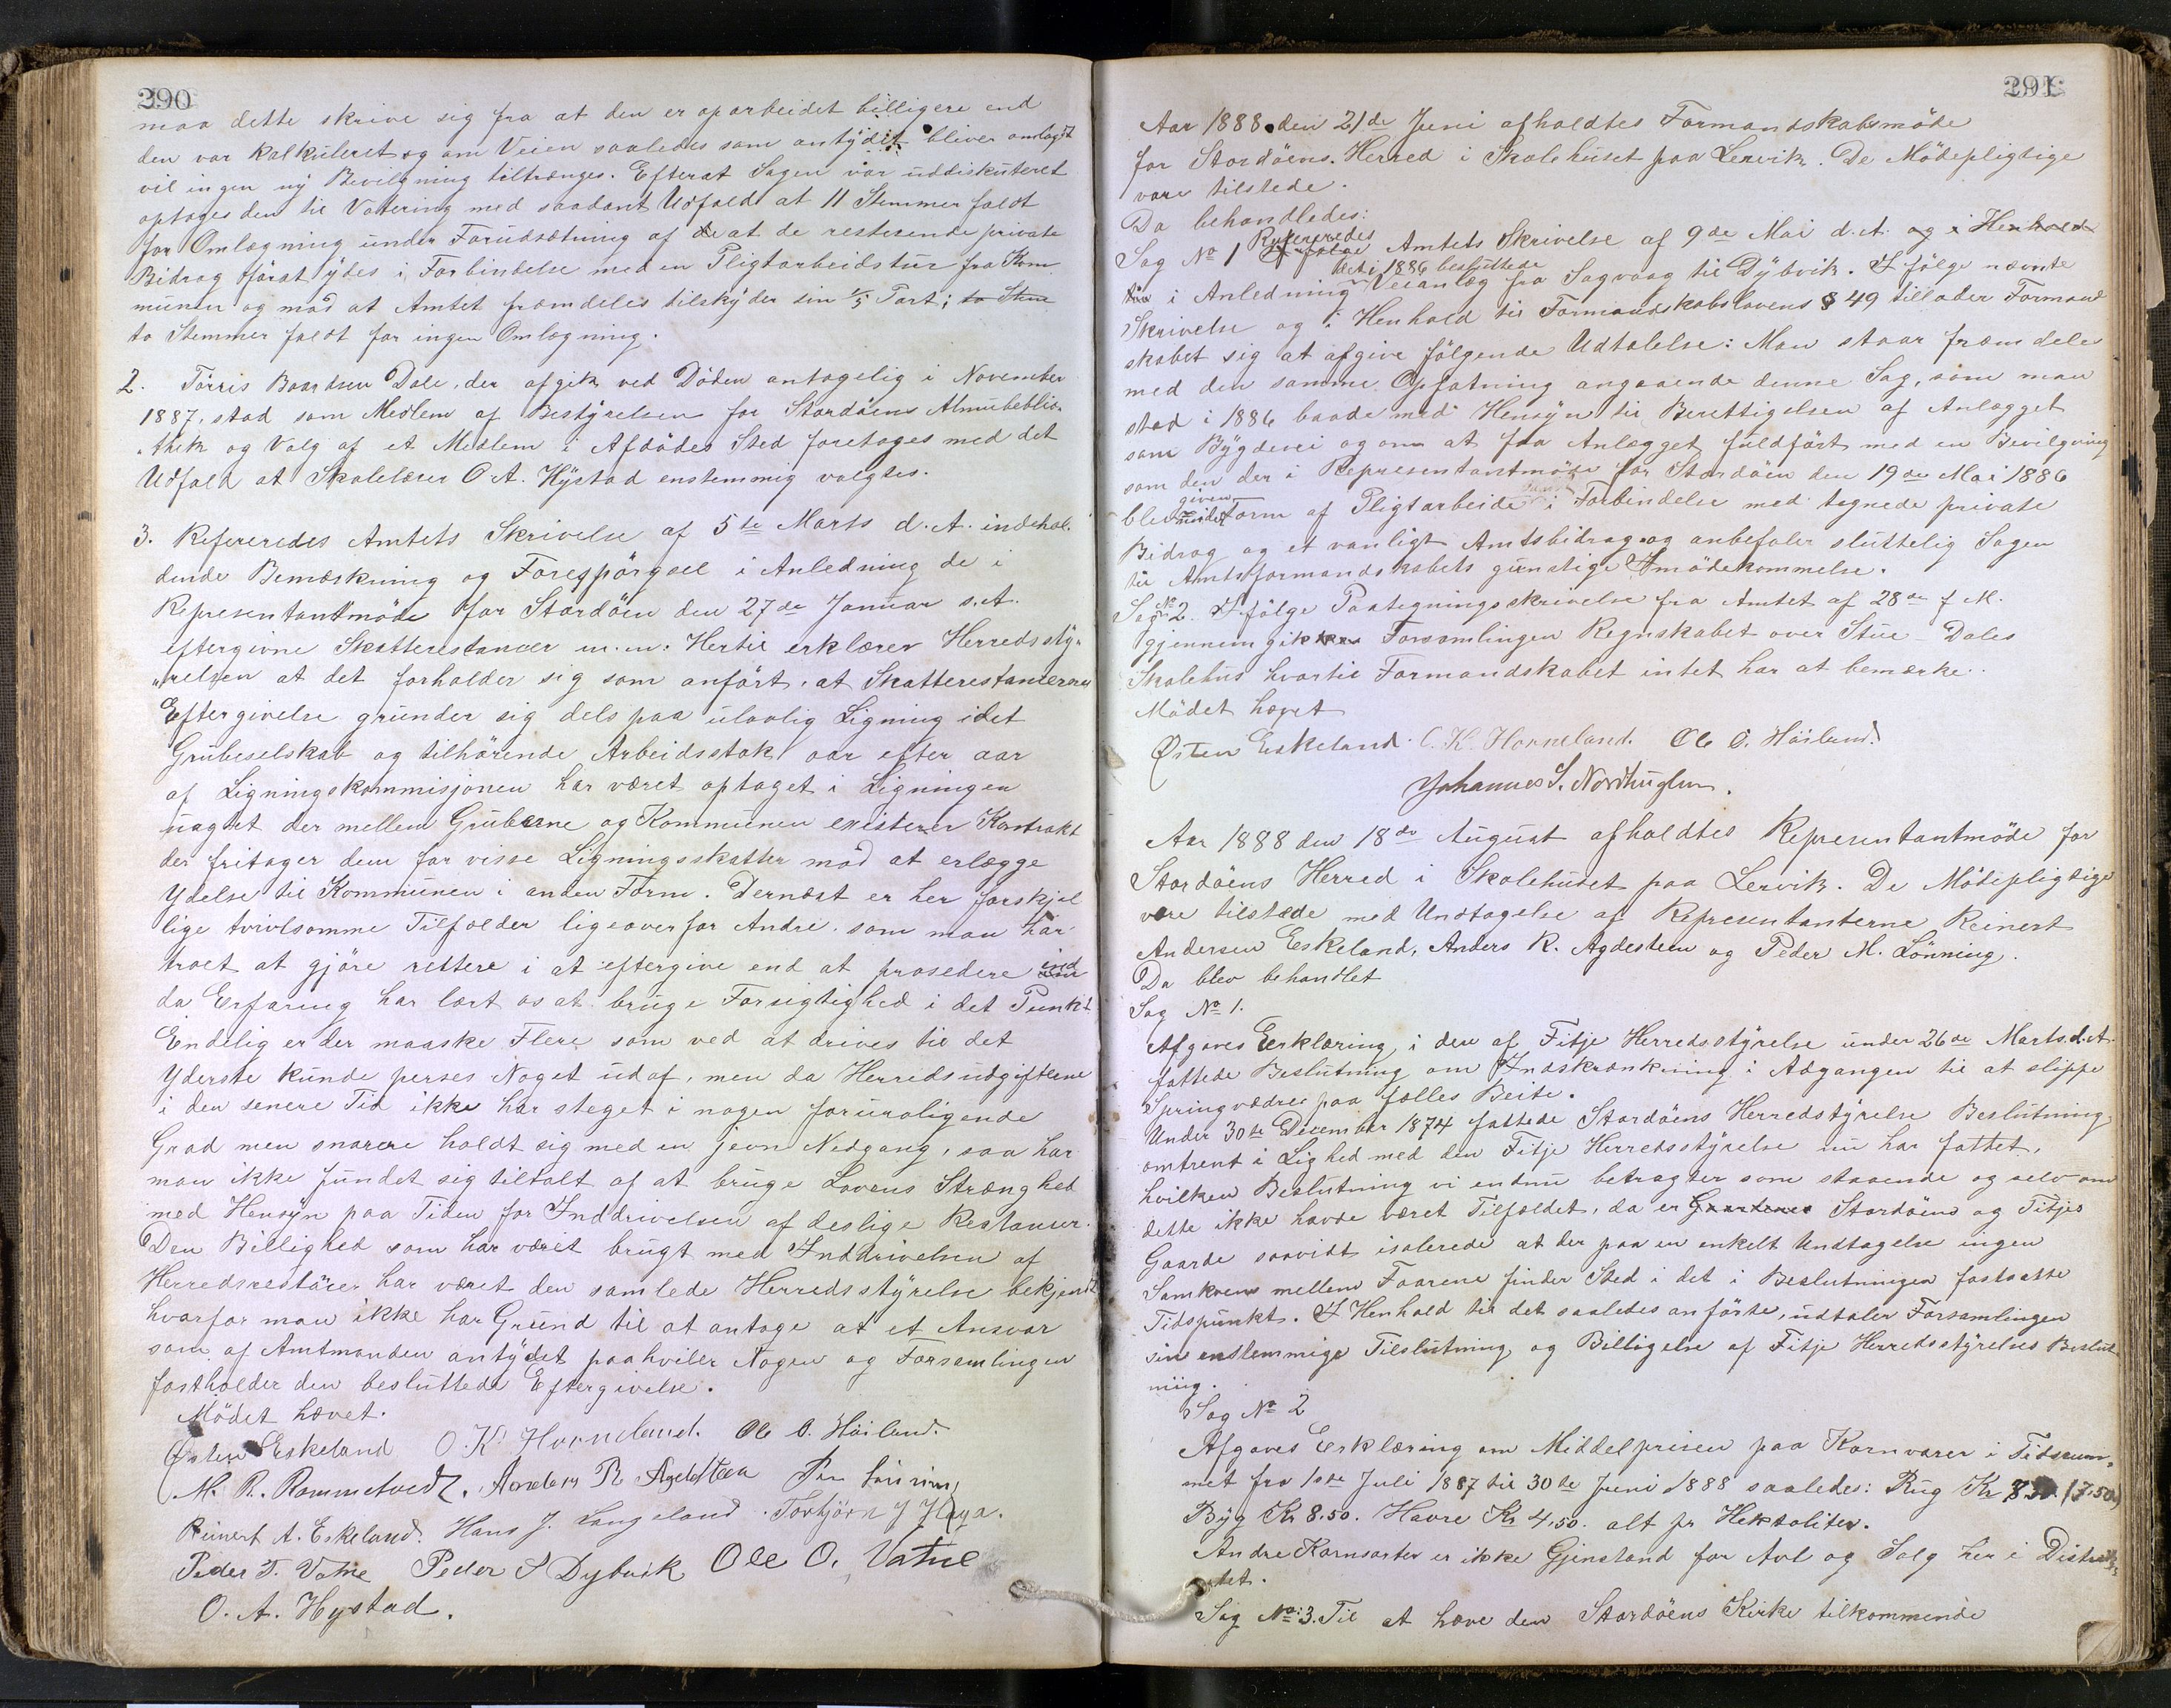 290
maa dette skrive sig fra at den er oparbeidet billigere end
den var kalkuleret og om Veien saaledes som antydet bliver omlagt
vil ingen ny Bevilgning tiltrænges. Efterat Sagen var uddiskuteret
optoges den til Votering med saadant Udfald at 11 Stemmer faldt
for Omlægning under Forudsætning af at de resterende private
Bidrag först ydes i Forbindelse med en Pligtarbeidstur fra Kom
munen og mod at Amtet fremdeles tilskyder sin 1/5 Part; to Stem
to Stemmer faldt for ingen Omlægning.
2. Törris Baardsen Dale, der afgik ved Döden antagelig i November
1887, stod som Medlem af Bestyrelsen for Stordöens Almuebiblio-
"thek og Valg af et Medlem i Afdödes Sted foretoges med det
Udfald at Skolelærer O. A. Hystad enstemmig valgtes.
3. Refereredes Amtets Skrivelse af 5te Marts d. A. indehol-
dende Bemærkning og Forespörgsel i Anledning de i
Representantmöde for Stordöen den 27de Januar s. A.
eftergivne Skatterestancer m. m. Hertil erklærer Herredssty-
"relsen at det forholder sig som anfört, at Skatterestancernes
Eftergivelse grunder sig dels paa ulovlig Ligning idet
Grubeselskab og tilhörende Arbeidsstok aar efter aar
af Ligningskommisjonen har været optaget i Ligningen
uagtet der mellem Gruberne og Kommunen existerer Kontrakt
der fritager dem for visse Ligningsskatter mod at erlægge
Ydelse til Kommunen i anden Form. Dernæst er her forskjel
lige tvivlsomme Tilfælder ligeoverfor Andre, som man har
troet at gjöre rettere i at eftergive end at prosedere ind
da Erfaring har lært os at bruge Forsigtighed i det Punkt.
Endelig er der maaske Flere som ved at drives til det
Yderste kunde perses Noget ud af, men da Herredsudgifterne
i den senere Tid ikke har steget i nogen foruroligende
Grad men snarere holdt sig med en jevn Nedgang, saa har
man ikke fundet sig tiltalt af at bruge Lovens Strænghed
med Hensyn paa Tiden for Inddrivelsen af deslige Restancer.
Den Billighed som har været brugt med Inddrivelsen af
Herredsrestancer har været den samlede Herredsstyrelse bekjendt
hvorfor man ikke har Grund til at antage at et Ansvar
som af Amtmanden antydet paahviler Nogen og Forsamlingen
fastholder den besluttede Eftergivelse.
Mödet hævet.
Østen Eskeland O. K. Horneland. Ole O. Höiland.
M. R. Rommetvedt. Anders R Agdesteen
Reinert A. Eskeland. Hans J. Langeland. Torbjörn J Haga.
Peder T. Vatne Peder S Dybvik Ole O. Vatne
O. A. Hystad.
291
Aar 1888 den 21de Juni afholdtes Formandskabsmöde
for Stordöens Herred i Skolehuset paa Lervik. De Mödepligtige
vare tilstede.
Da behandledes:
Sag No 1 Refereredes Amtets Skrivelse af 9de Mai d. A. og i Henhold
til i Anledning det i 1886 besluttede Veianlæg fra Sagvaag til Dybvik. Ifölge nævnte
Skrivelse og i Henhold til Formandskabslovens § 49 tillader Formand
skabet sig at afgive fölgende Udtalelse: Man staar fremdeles
med den samme Opfatning angaaende denne Sag, som man
stod i 1886 baade med Hensyn til Berettigelsen af Anlægget
som Bygdevei og om at faa Anlægget fuldfört med en Bevilgning
som den der i Representantmöde for Stordöen den 19de Mai 1886
blev given under Form af Pligtarbeide i Forbindelse med tegnede private
Bidrag og et vanligt Amtsbidrag og anbefaler sluttelig Sagen
til Amtsformandskabets gunstige Imödekommelse.
Sag No 2. Ifölge Paategningsskrivelse fra Amtet af 28de f. M.
gjennemgik Forsamlingen Regnskabet over Stue-Dales
Skolehus hvortil Formandskabet intet har at bemærke.
Mödet hævet
Østen Eskeland. O. K. Horneland. Ole O. Höiland.
Johannes S. Nordhuglen.
Aar 1888 den 18de August afholdtes Representantmöde for
Stordöens Herred i Skolehuset paa Lervik. De Mödepligtige
vare tilstede med Undtagelse af Representanterne Reinert
Andersen Eskeland, Anders R. Agdesteen og Peder M. Lönning.
Da blev behandlet
Sag No 1.
Afgaves Erklæring i den af Fitje Herredsstyrelse under 26de Marts d. A.
fattede Beslutning om Indskrænkning i Adgangen til at slippe
Springvædrer paa fælles Beite.
Under 30te December 1874 fattede Stordöens Herredstyrelse Beslutning
omtrent i Lighed med den Fitje Herredsstyrelse nu har fattet,
hvilken Beslutning vi endnu betragter som staaende og selv om
dette ikke havde været Tilfældet, da er Gaardenes Stordöens og Fitjes
Gaarde saavidt isolerede at der paa en enkelt Undtagelse ingen
Samkvem mellem Faarene finder Sted i det i Beslutningen fastsatte
Tidspunkt. I Henhold til det saaledes anförte, udtaler Forsamlingen
sin enstemmige Tilslutning og Billigelse af Fitje Herredsstyrelses Beslut
ning.
Sag No 2
Afgaves Erklæring om Middelprisen paa Kornvarer i Tidsrum-
met fra 1ste Juli 1887 til 30te Juni 1888 saaledes: Rug Kr (7.50)
Byg Kr 8.50. Havre Kr 4.50. alt pr Hektoliter.
Andre Kornsorter er ikke Gjenstand for Avl og Salg her i Distrik-
tet.
Sag No: 3. Til at hæve den Stordöens Kirke tilkommende